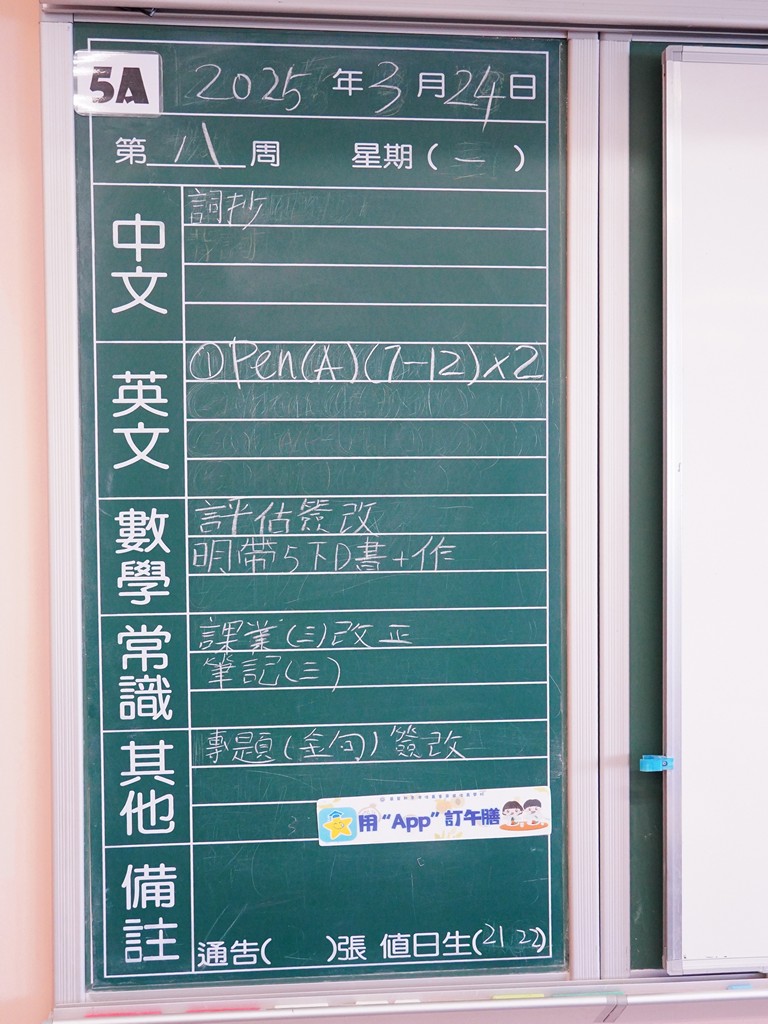 5A
2025年3月24日
第八周 星期(一)
中文
詞抄
英文
①Pen(A)(7-12)x2
數學
評估簽改
明帶5下D書+作
常識
課業(三)改正
筆記(三)
其他
專題(全句)簽改
用“App”訂午膳
備註
通告( )張 值日生(21 22)